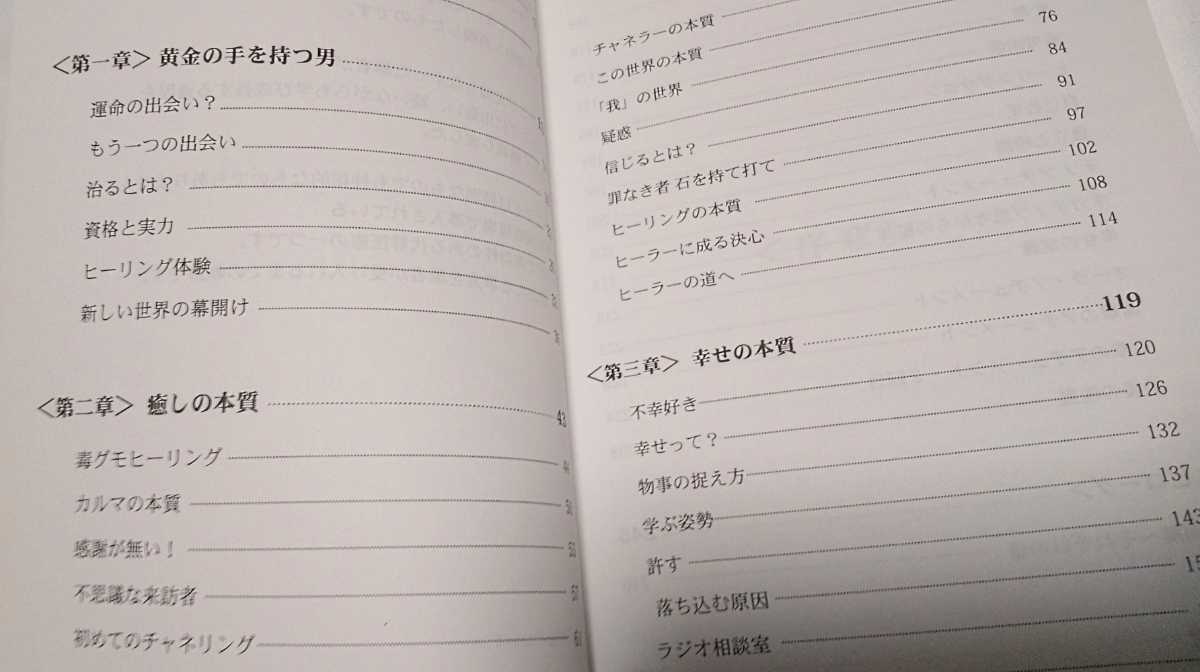 〈第一章〉 黄金の手を持つ男
運命の出会い？
もう一つの出会い
治るとは？
資格と実力
ヒーリング体験
新しい世界の幕開け
〈第二章〉 癒しの本質 43
毒グモヒーリング
カルマの本質
感謝が無い！
不思議な来訪者
初めてのチャネリング 61
チャネラーの本質
この世界の本質
「我」の世界 76
疑惑 84
信じるとは？ 91
罪なき者 石を持て打て 97
ヒーリングの本質 102
ヒーラーに成る決心 108
ヒーラーの道へ 114
〈第三章〉 幸せの本質 119
不幸好き 120
幸せって？ 126
物事の捉え方 132
学ぶ姿勢 137
許す 143
落ち込む原因
ラジオ相談室